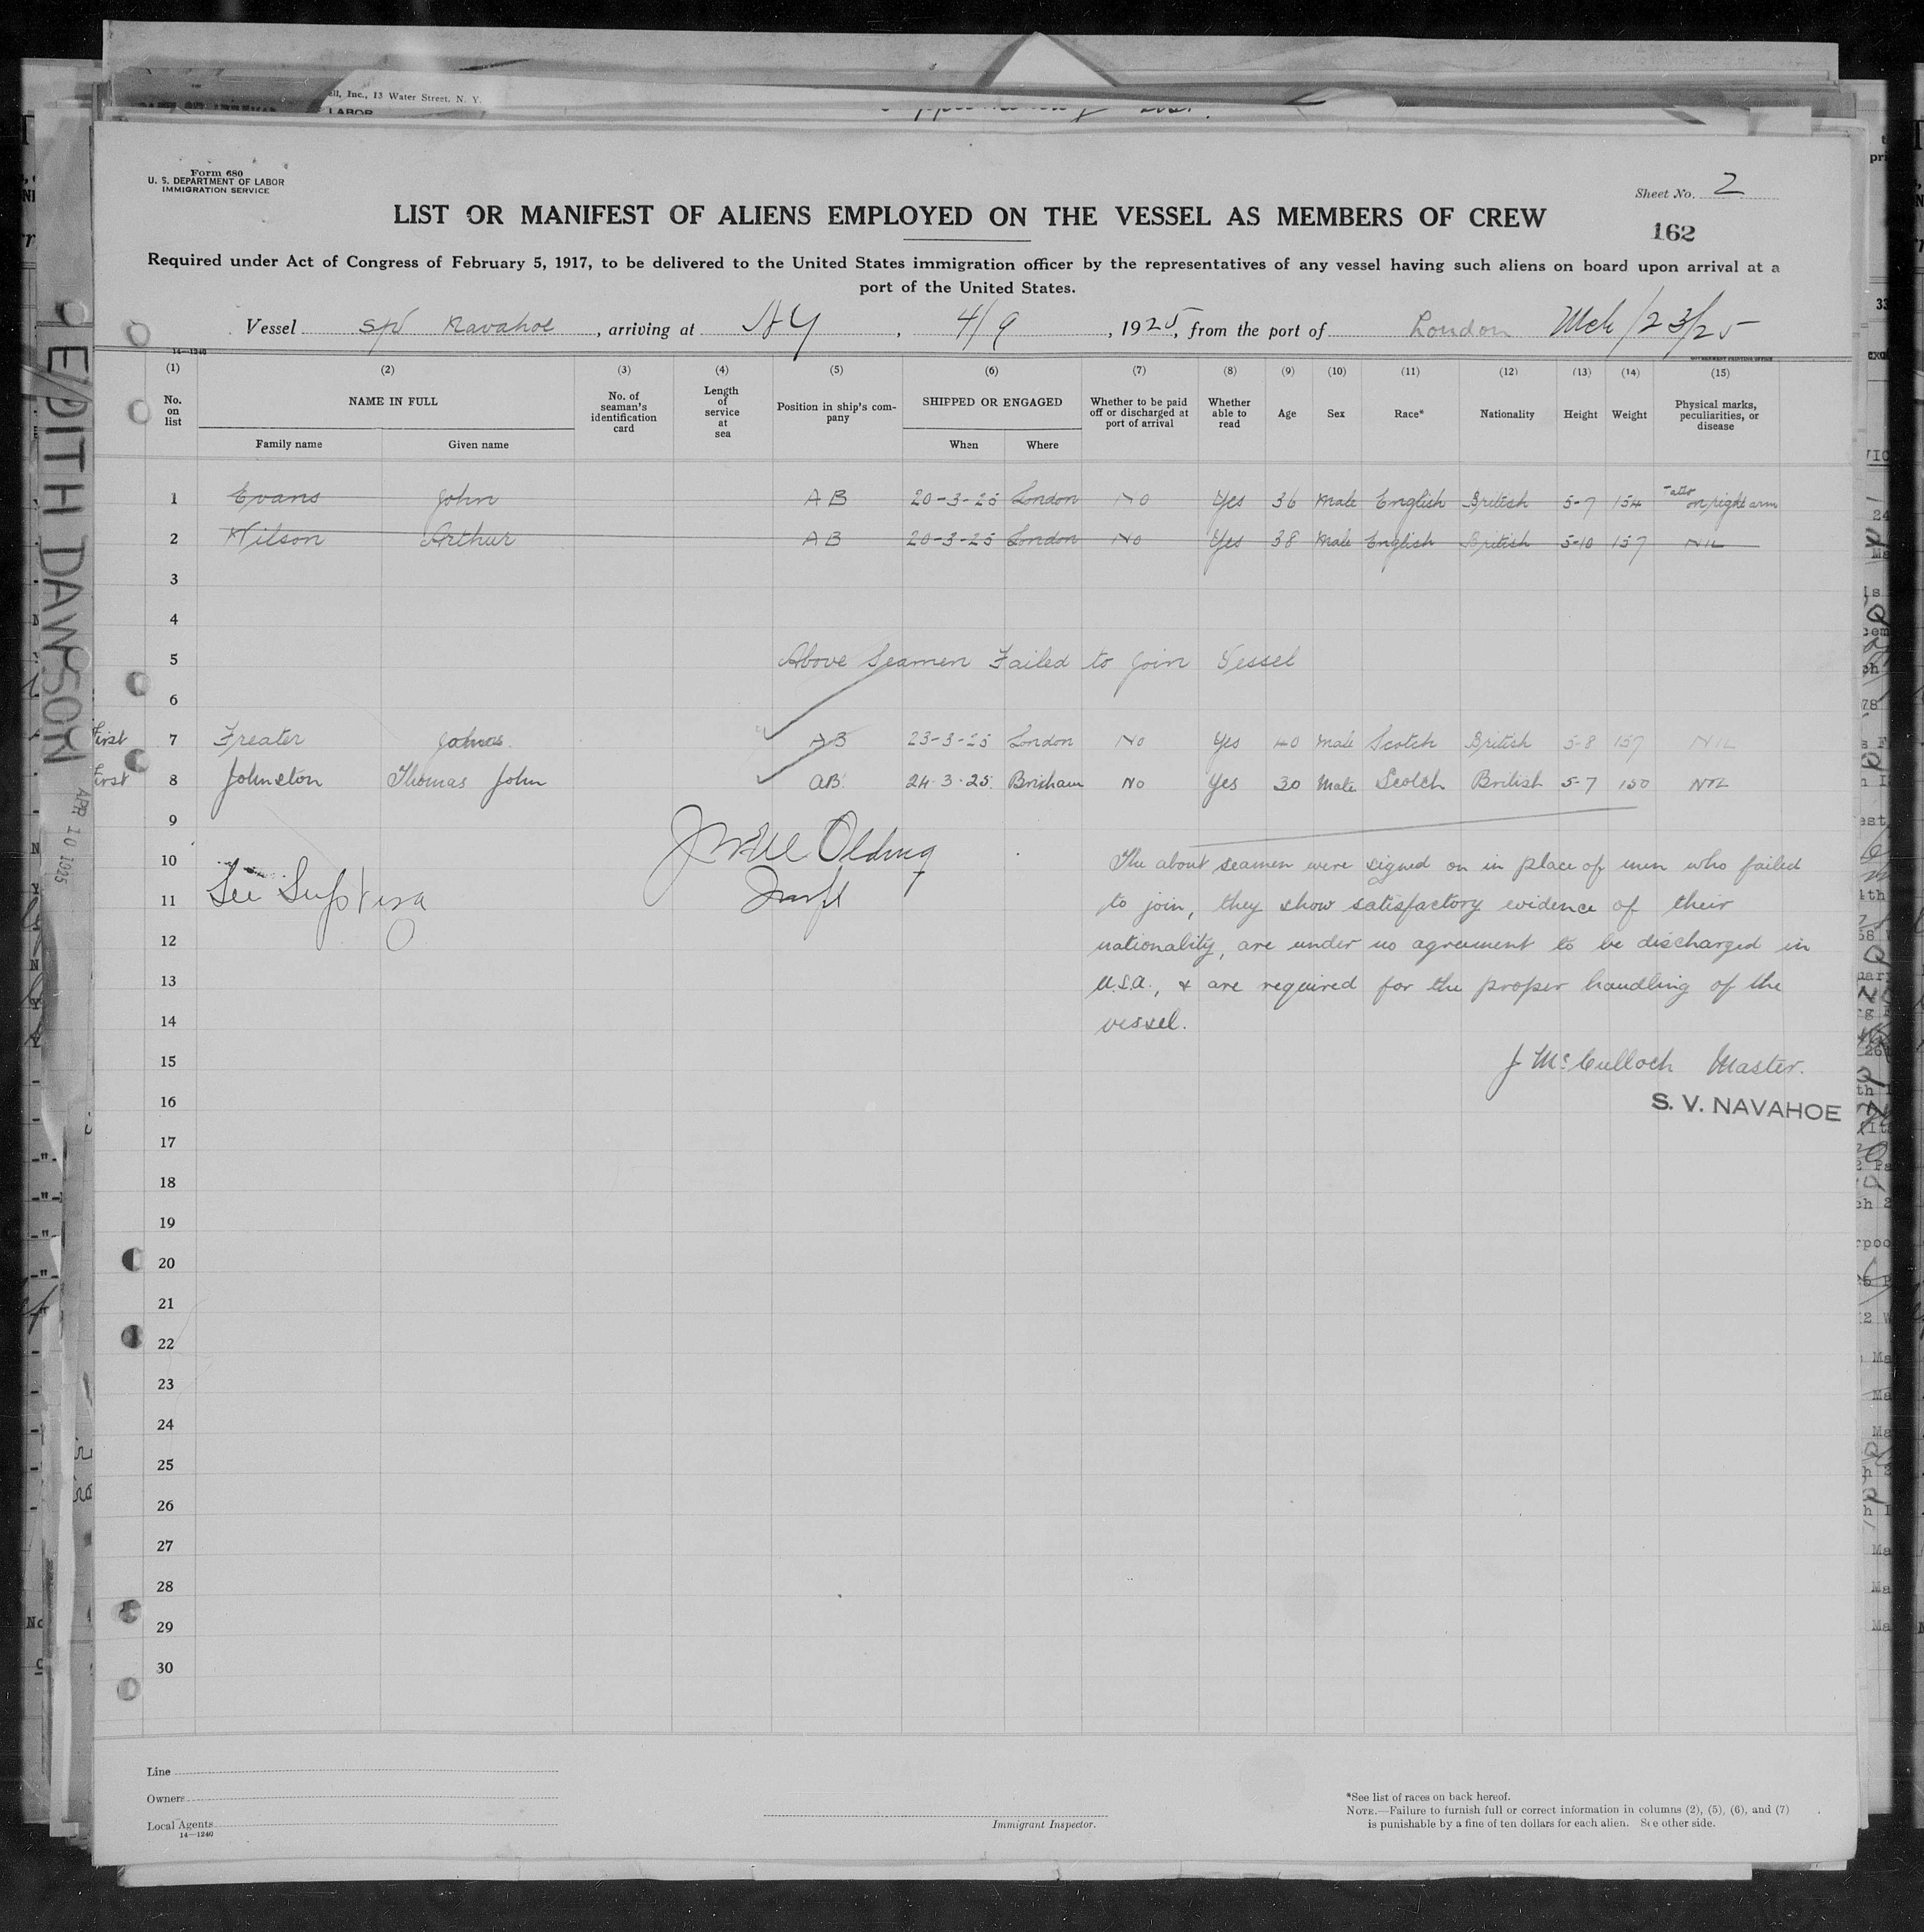 ell, Inc., 13 Water Street, N. Y.
LABOR
Form 680
U. S. DEPARTMENT OF LABOR
IMMIGRATION SERVICE
Sheet No. 2
LIST OR MANIFEST OF ALIENS EMPLOYED ON THE VESSEL AS MEMBERS OF CREW
162
Required under Act of Congress of February 5, 1917, to be delivered to the United States immigration officer by the representatives of any vessel having such aliens on board upon arrival at a
port of the United States.
Vessel Navahoe, arriving at NY, 4/9, 1925, from the port of London Mch/23/25
14—1240
GOVERNMENT PRINTING OFFICE
(1) (2) (3) (4) (5) (6) (7) (8) (9) (10) (11) (12) (13) (14) (15)
No. on list NAME IN FULL No. of seaman's identification card Length of service at sea Position in ship's company SHIPPED OR ENGAGED Whether to be paid off or discharged at port of arrival Whether able to read Age Sex Race* Nationality Height Weight Physical marks, peculiarities, or disease
Family name Given name When Where
1 Evans John AB 20-3-25 London No Yes 36 Male English British 5-7 154 Tattoo on right arm
2 Wilson Arthur AB 20-3-25 London No Yes 38 Male English British 5-10 157 NIL
3
4
5 Above Seamen Failed to join Vessel
6
First 7 Freater AB 23-3-25 London No Yes 40 Male Scotch British 5-8 157 NIL
First 8 Johnston Thomas John AB 24-3-25 Brixham No Yes 30 Male Scotch British 5-7 150 NIL
9
10 The about seamen were signed on in place of men who failed
See
11 to join, they show satisfactory evidence of their
12 nationality, are under no agreement to be discharged in
13 U.S.A., & are required for the proper handling of the
14 vessel.
15 J McCulloch Master.
16 S. V. NAVAHOE
17
18
19
20
21
22
23
24
25
26
27
28
29
30
Line
Owners
Local Agents
14—1240
Immigrant Inspector.
*See list of races on back hereof.
NOTE.—Failure to furnish full or correct information in columns (2), (5), (6), and (7)
is punishable by a fine of ten dollars for each alien. See other side.
EDITH DAWSON
APR 10 1925